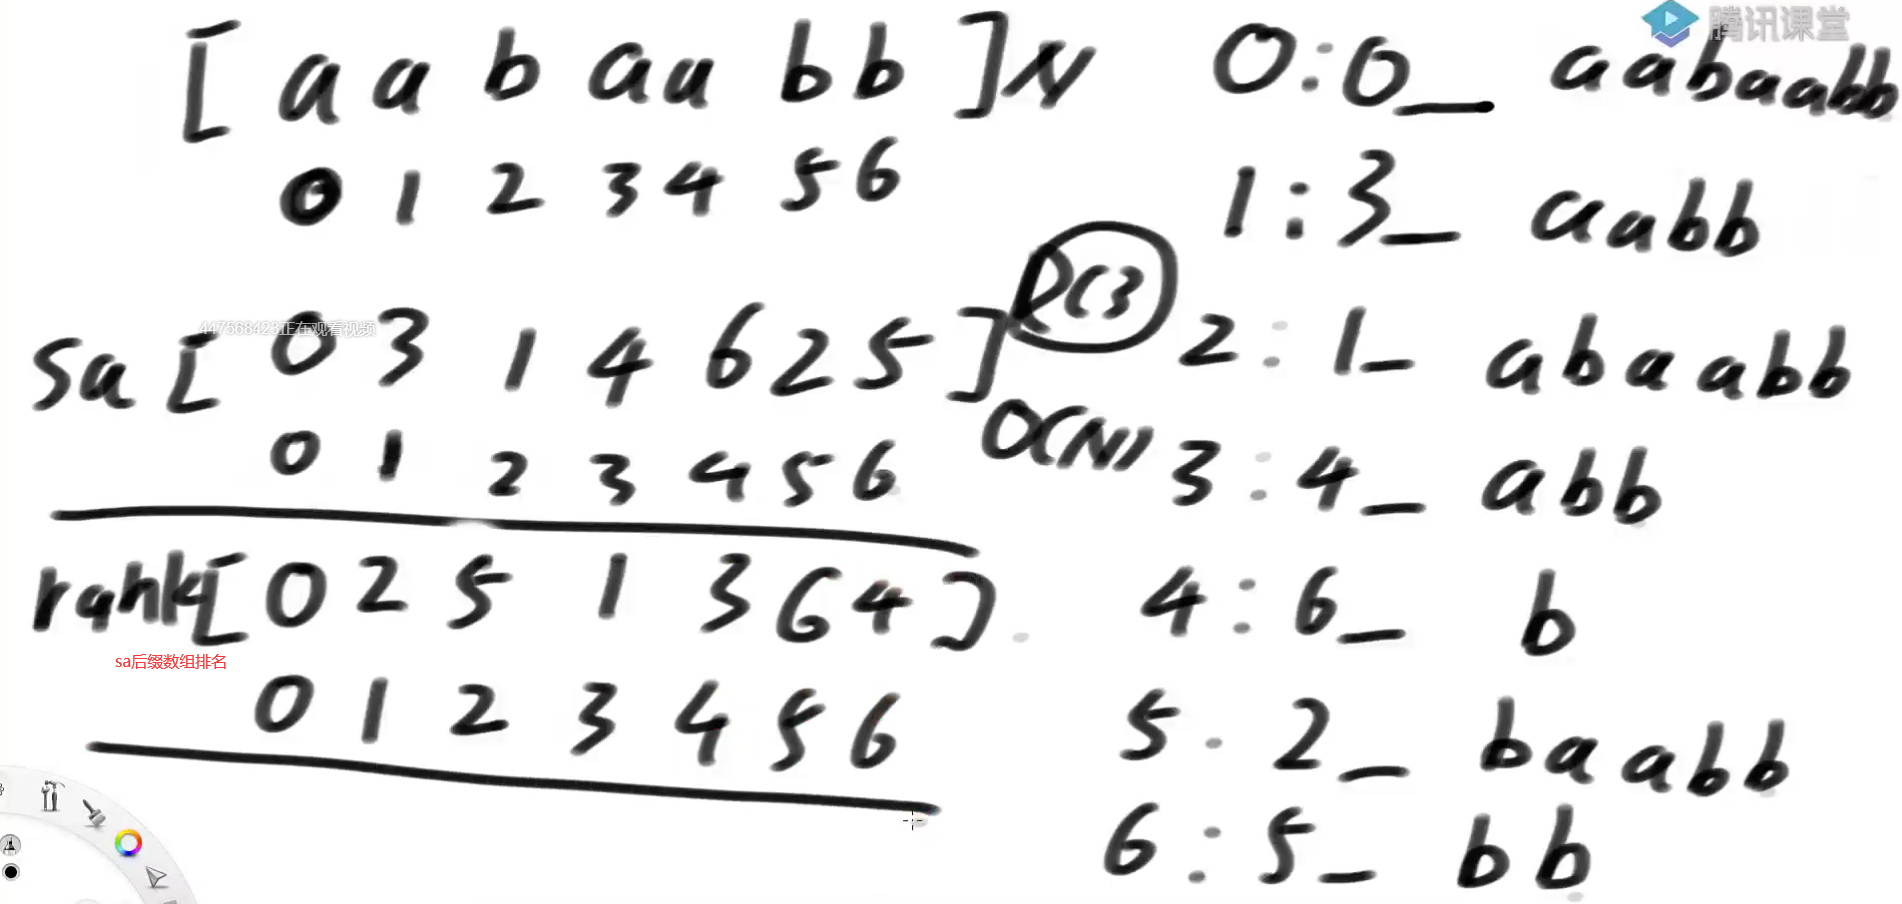 [ a a b a a b b ] N
0 1 2 3 4 5 6
sa [ 0 3 1 4 6 2 5 ]
0 1 2 3 4 5 6
DC3
O(N)
rank [ 0 2 5 1 3 6 4 ]
sa后缀数组排名
0 1 2 3 4 5 6
腾讯课堂
447568423正在观看视频
0:0_ aabaabb
1:3_ aabb
2:1_ abaabb
3:4_ abb
4:6_ b
5.2_ baabb
6:5_ bb